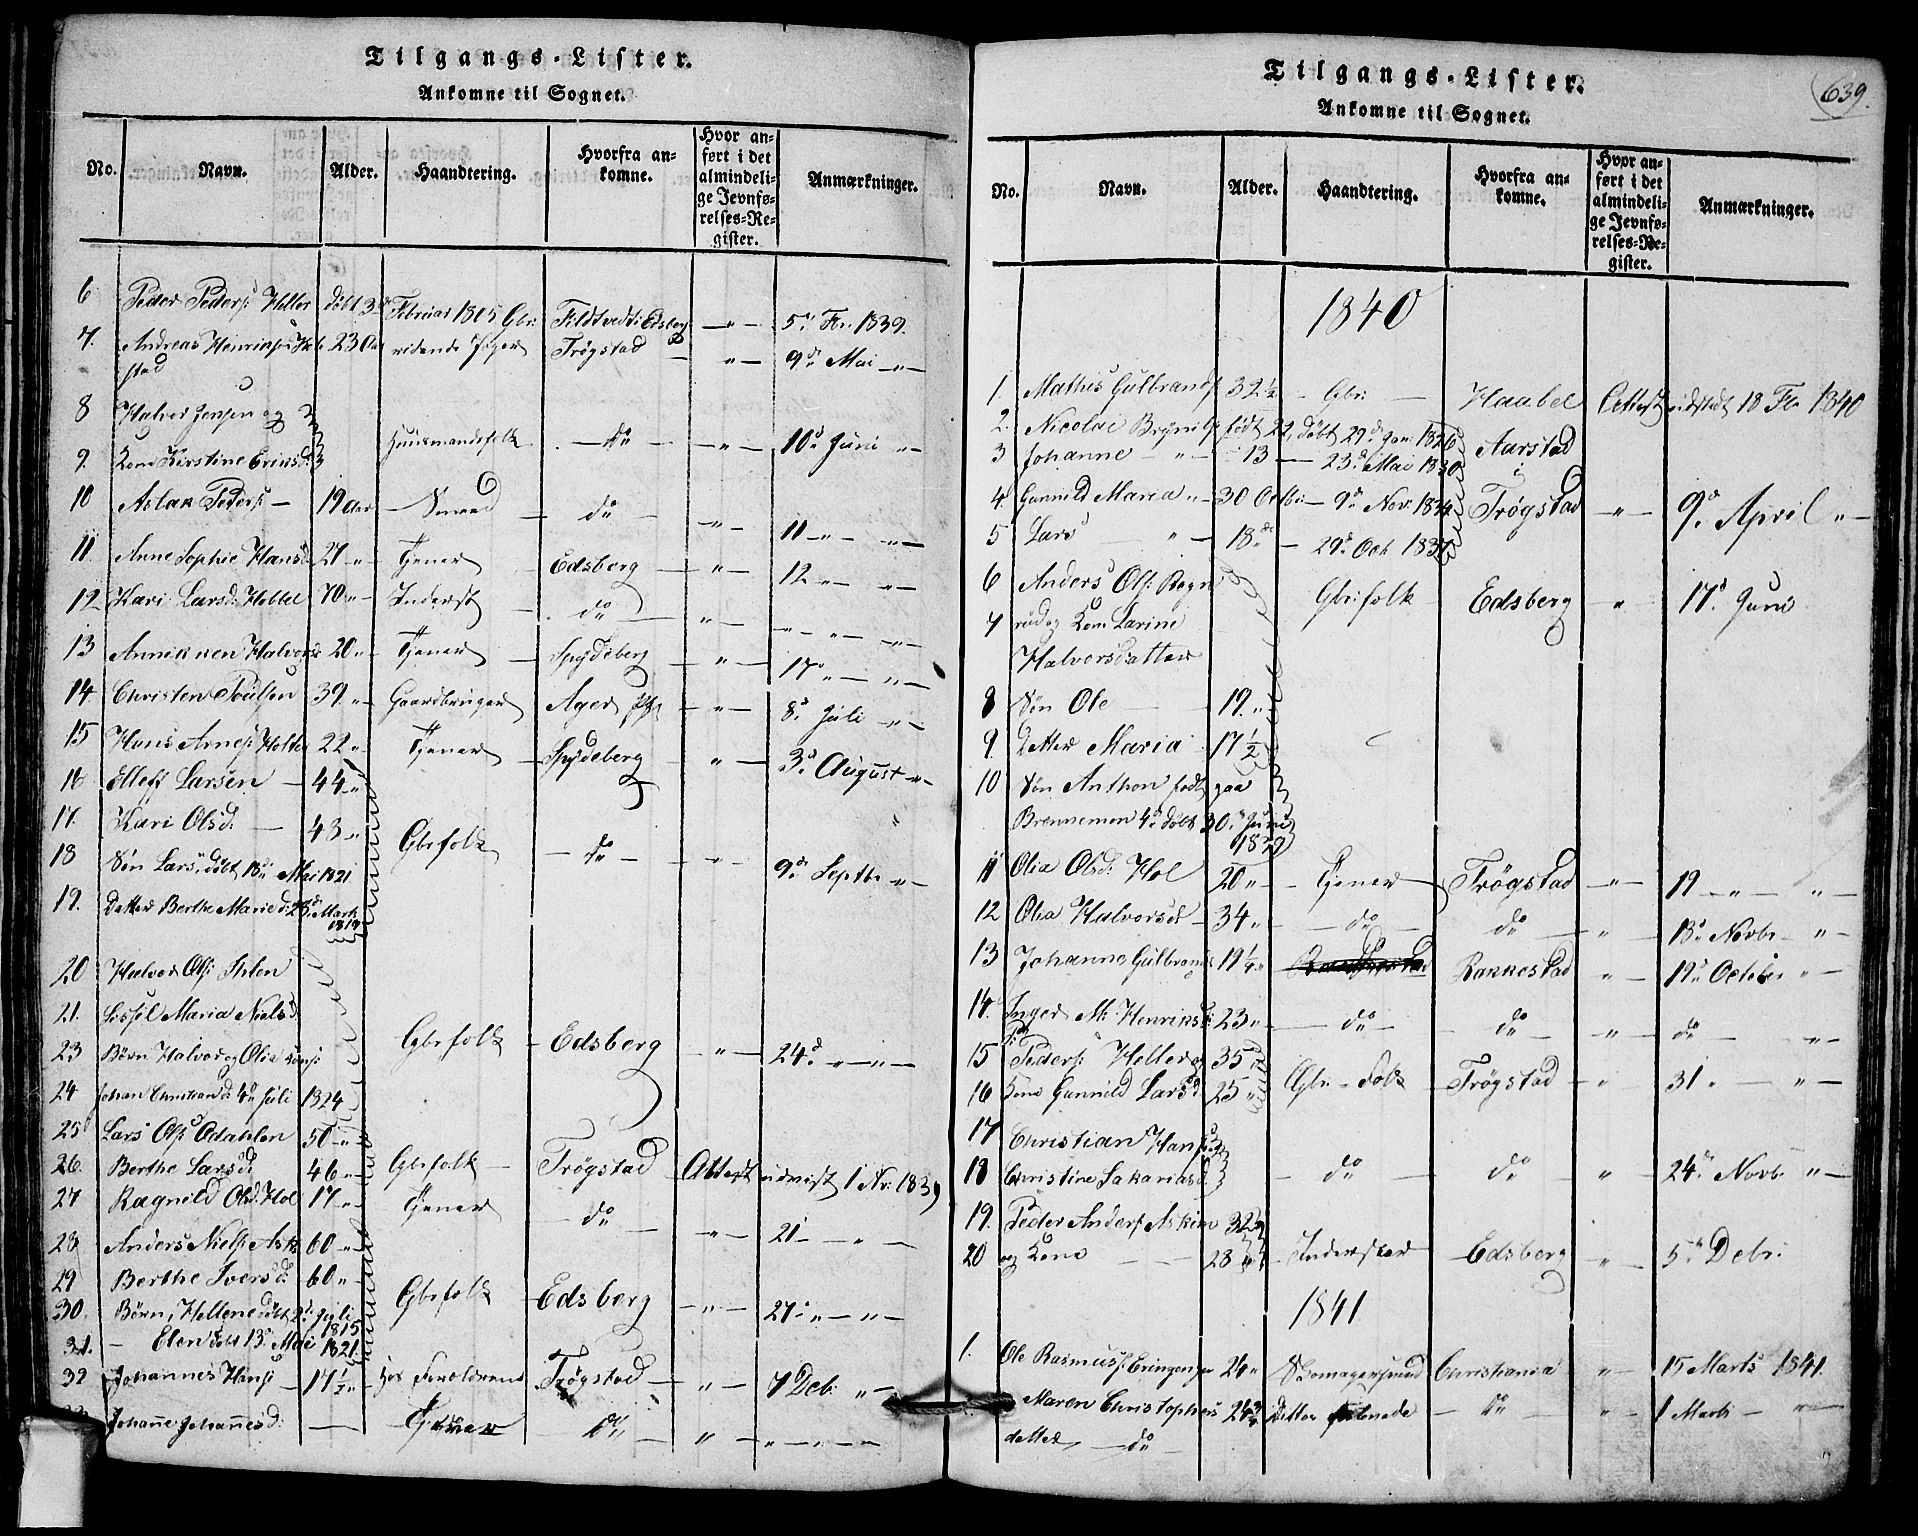 Tilgangs-Lister.
Ankomne til Sognet.
No. Navn. Alder. Haandtering. Hvorfra ankomne. Hvor anført i det almindelige Jevnførelses-Register. Anmærkninger.
6 Peder Peders: Heller døbt 3d Februar 1805 Gbr: Edsberg — " — 5d Fbr. 1839.
7. Andreas Henriks: 23 Aar ridende Jæger Trøgstad — " — 9d Mai — " —
stad
8 Halvor Jensen og
9. Kone Kirstine Eriksd: Huusmandsfolk — do — — " — 10d Juni " —
10 Aslak Peders: — 19 Aar — Smed — do — — " — 11 — " — " —
11 Anne Sophie Hansd: 21 " — Tjener Edsberg — — " — 12 " — " —
12 Kari Larsd: Hobbel 70 " — Inderst — do — — " — " — " — " —
13 Anniken Halvorsd 20 " — Tjener — Spydeberg — " — 17 " — " —
14. Christen Poulsen 39. " — Gaardbruger Ager — " — 8d Juli — " —
15 Hans Arnes: Holte 22 " — Tjener — Spydeberg — " — 3d August — " —
16 Elleff Larsen — 44 "
17. Kari Olsd. — 43 " Gbrfolk — do — — " — 9d Septbr — " —
18 Søn Lars, døbt 18d Mai 1821
19. Datter Berthe Marie d: 28d Marts
1819
20 Halvor Ols:
21. Lisphl Maria Nielsd
23 Børn Halvor og Olia Gbrfolk Edsberg — " — 24d — " — " —
24 Johan Christian d: 4d Juli 1824
25 Lars Ols: Odahlen 50 " —
26. Berthe Larsd: 46 " — Gbrfolk — Trøgstad Attest udvist 1 Nv. 1839
27 Ragnild Olsd. Hol 17 " — Tjener — do — — " — 21 — " —
28 Anders Niels: Ask 60 " —
29 Berthe Iversd: 60 " — Gbrfolk Edsberg — " — 27 " — " —
30. Børn, Hellene døbt 2d Juli
1815
31. — Elen døbt 13d Mai 1821
32 Johannes Hans: — 17 1/2 " Hos Forældrene Trøgstad — — " — 7 Debr " —
Johanne Johannesd: — Tjener — do — " — " — " —
Tilgangs-Lister.
Ankomne til Sognet.
639.
No. Navn. Alder. Haandtering. Hvorfra ankomne. Hvor anført i det almindelige Jevnførelses-Register. Anmærkninger.
1840
1. Mathis Gulbrands: 32 1/2 — Gbr: — Haabel Attest udstædt 18 Fbr 1840
2. Nicolai født 22, døbt 29d Jan: 1826
3 Johanne — " — 13 — 23d Mai 1830 Aarstad
i
4. Gunnild Maria " — 30 Octbr: — 9d Nov. 1834 Trøgstad — " — 9d April " —
5 Lars — " — 18d — 29d Oct 1837
6 Anders Ols: Gbr:folk Edsberg " 17d Juni
7 rud og Kone Larine
Halvorsdatter
8 Søn Ole — 19. "
9 Datter Maria 17 1/2
10 Søn Anthon født paa
Brennemoen 4d døbt 30d Juni
11 Olia Olsd: Hol 20 " — Tjener Trøgstad — " — 19 — " — " —
12 Olia Halvorsd — 34 " — do — do — " — 18d Novbr — " —
13 Johanne Gulbrands 19 1/4 " Rakkestad — " — 19d October " —
14. Inger M: Henriksd: 23 " — do — do " — do — " —
15 Peders: Heller og 35
16 Kone Gunnild Larsd 25 " Gbr: — Folk — Trøgstad — " 31 " — " —
17 Christian Hans:
18 Christine Sakariasd — do — do " 24d Novbr. " —
19. Peder Anders: Askim 32
20 og Kone — — 28 " — Inderster Edsberg — " — 5d Debr:
1841
1. Ole Rasmuss: 26 " Skomagersvend Christiania " 15 Marts 1841.
Maren Christophers 24 3/4 Ditto — do — " 1 Marts — " —
datter — do —